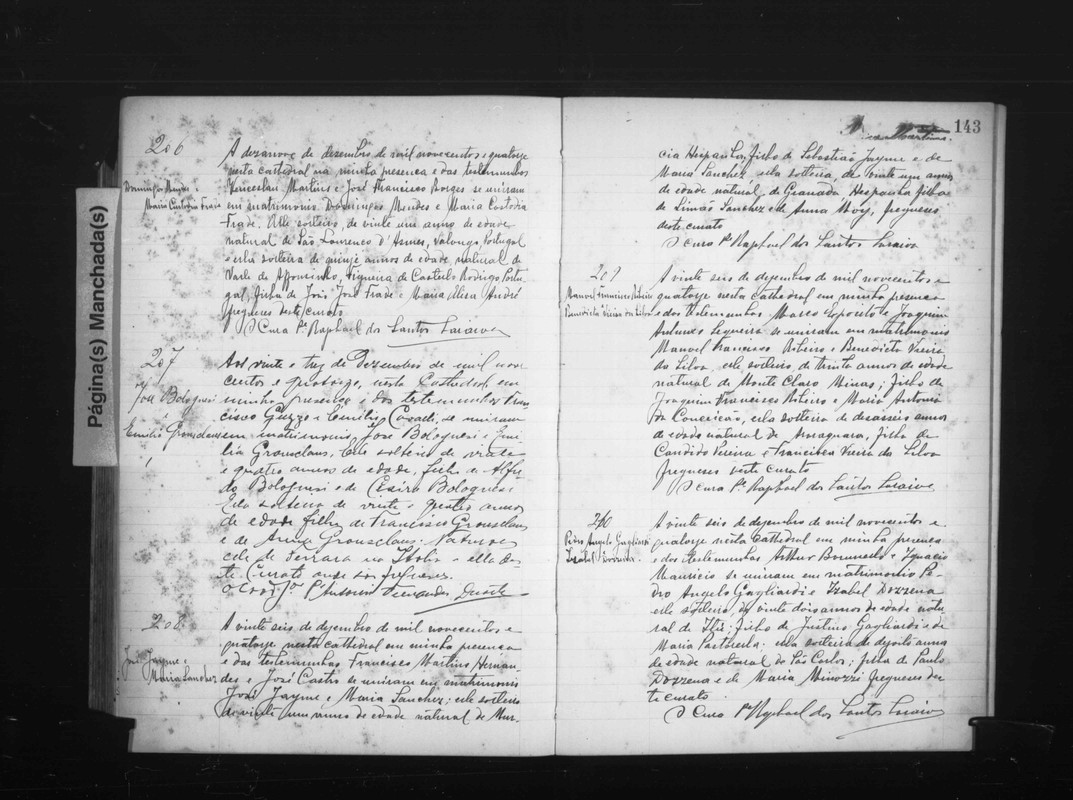 Página(s) Manchada(s)
206
Domingos Mendes e
Maria Custodia Frade
A dezanove de dezembro de mil novecentos e quatorse
nesta cathedral na minha presença e das testemunhas
Wenceslau Martins e José Francisco Borges se uniram
em matrimonio Domingos Mendes e Maria Custodia
Frade. Elle solteiro, de vinte um annos de edade
natural de São Lourenco d'Asmes, Valongo, Portugal
e ella solteira de quinze annos de edade, natural de
Figueira de Castelo Rodrigo, Portu-
gal, filha de João José Frade e Maria Elisa André
freguezes deste curato
O Cura Pe Raphael dos Santos
207
José Bolognesi
e
Emilia Grousclaus
Aos vinte e trez de Dezembro de mil nove
centos e quatorze, nesta Cathedral em
minha presença e das testemunhas Fran-
cisco Guzzo e Emilio se uniram
em matrimonio José Bolognesi e Emi-
lia Grousclaus. Elle solteiro de vinte
e quatro annos de edade, filho de Alfre-
do Bolognesi e de Cesira Bolognesi
Ella solteira de vinte e quatro annos
de edade filha de Francisco Grousclaus
e de Anna Grousclaus. Naturaes
elle de Ferrara na Italia e ella des-
te Curato onde são freguezes.
O Coadjor Pe Antonio Duarte
208
José Jayme e
Maria Sanchez
A vinte seis de dezembro de mil novecentos e
quatorse nesta cathedral em minha presença
e das testemunhas Francisco Martins Hernan-
des e José Castro se uniram em matrimonio
José Jayme e Maria Sanchez; elle solteiro
de vinte um annos de edade natural de Mur-
143
cia Hespanha, filho de Sebastião Jayme e de
Maria Sanchez, ella solteira, de vinte um annos
de edade natural de Granada Hespanha filha
de Simão Sanchez e de Anna freguezes
deste curato
O Cura Pe Raphael dos Santos
209
Manoel Francisco Ribeiro
Benedicta Vieira da Silva
A vinte seis de dezembro de mil novecentos e
quatorse nesta cathedral em minha presença
e das testemunhas Marco Esposito e Joaquim
Antunes se uniram em matrimonio
Manoel Francisco Ribeiro e Benedicta Vieira
da Silva, elle solteiro, de trinta annos de edade
natural de Monte Claro Minas; filho de
Joaquim Francisco Ribeiro e Maria Antonia
da Conceição, ella solteira de desaseis annos
de edade natural de Araraquara, filha de
Candido Vieira e Francisca Vieira da Silva
freguezes deste curato
O Cura Pe Raphael dos Santos
210
Pedro Angelo Gagliardi
Izabel Dozzena
A vinte seis de dezembro de mil novecentos e
quatorse nesta cathedral em minha presença
e das testemunhas Arthur e Ignacio
Mauricio se uniram em matrimonio Pe-
dro Angelo Gagliardi e Izabel Dozzena
elle solteiro, de vinte dois annos de edade natu-
ral de Itú; filho de Justino Gagliardi e de
Maria ella solteira de desoito annos
de edade natural de São Carlos; filha de Paulo
Dozzena e de Maria Minozzi freguezes des-
te curato
O Cura Pe Raphael dos Santos